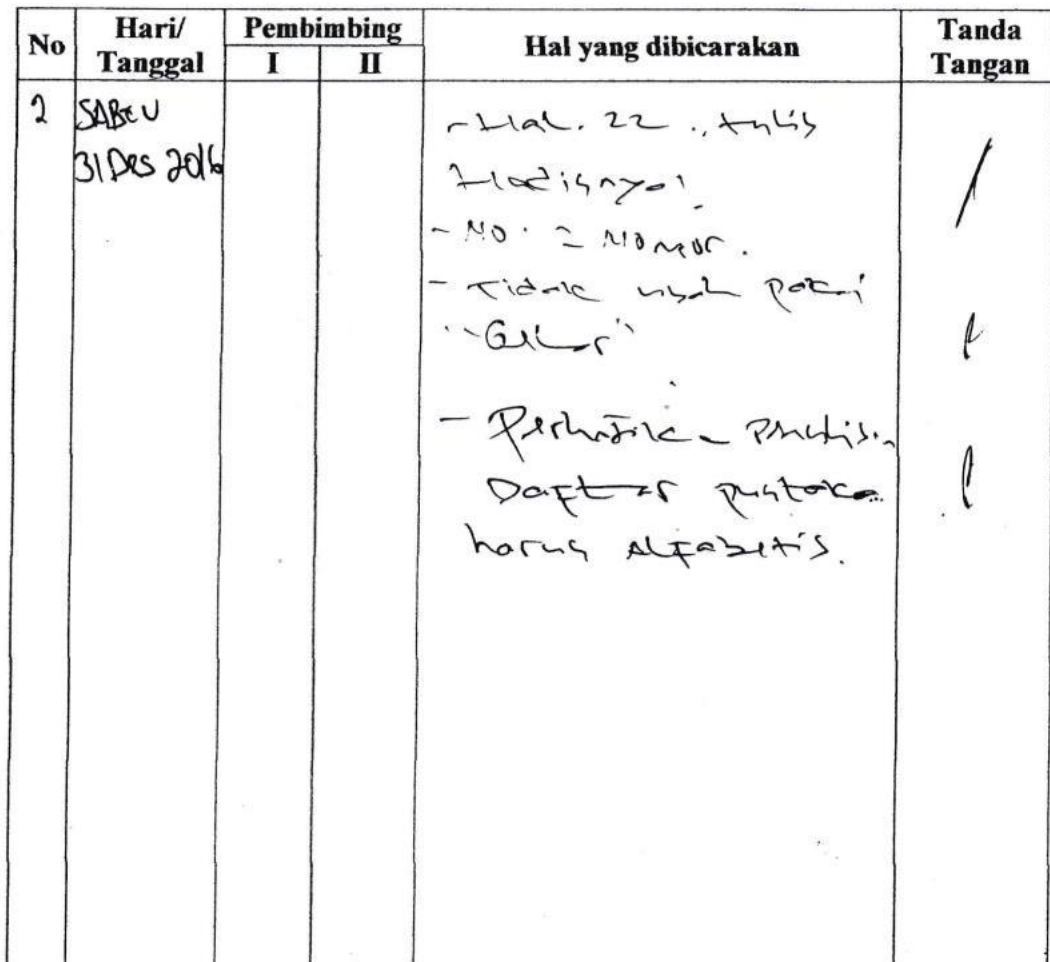 No Hari/ Tanggal Pembimbing I II Hal yang dibicarakan Tanda Tangan
2 SABTU
31 Des 2016
- Hal. 22 , tulis
Hadisnya!
- No. = Nomor.
- Tidak usah pakai
"Gelar"
- Perhatikan Penulisan
Daftar pustaka
harus Alfabetis.